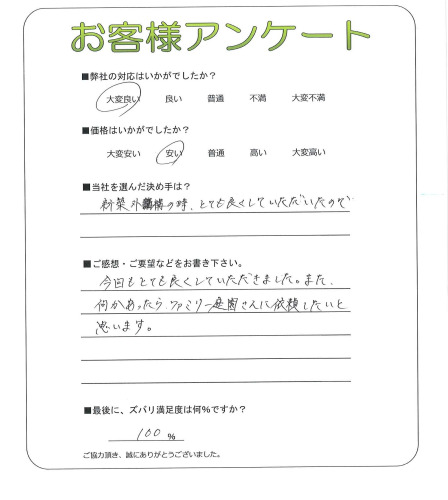 お客様アンケート
■弊社の対応はいかがでしたか？
大変良い 良い 普通 不満 大変不満
■価格はいかがでしたか？
大変安い 安い 普通 高い 大変高い
■当社を選んだ決め手は？
新築外構の時、とても良くしていただいたので
■ご感想・ご要望などをお書き下さい。
今回もとても良くしていただきました。また、
何かあったらファミリー庭園さんに依頼したいと
思います。
■最後に、ズバリ満足度は何%ですか？
100 %
ご協力頂き、誠にありがとうございました。